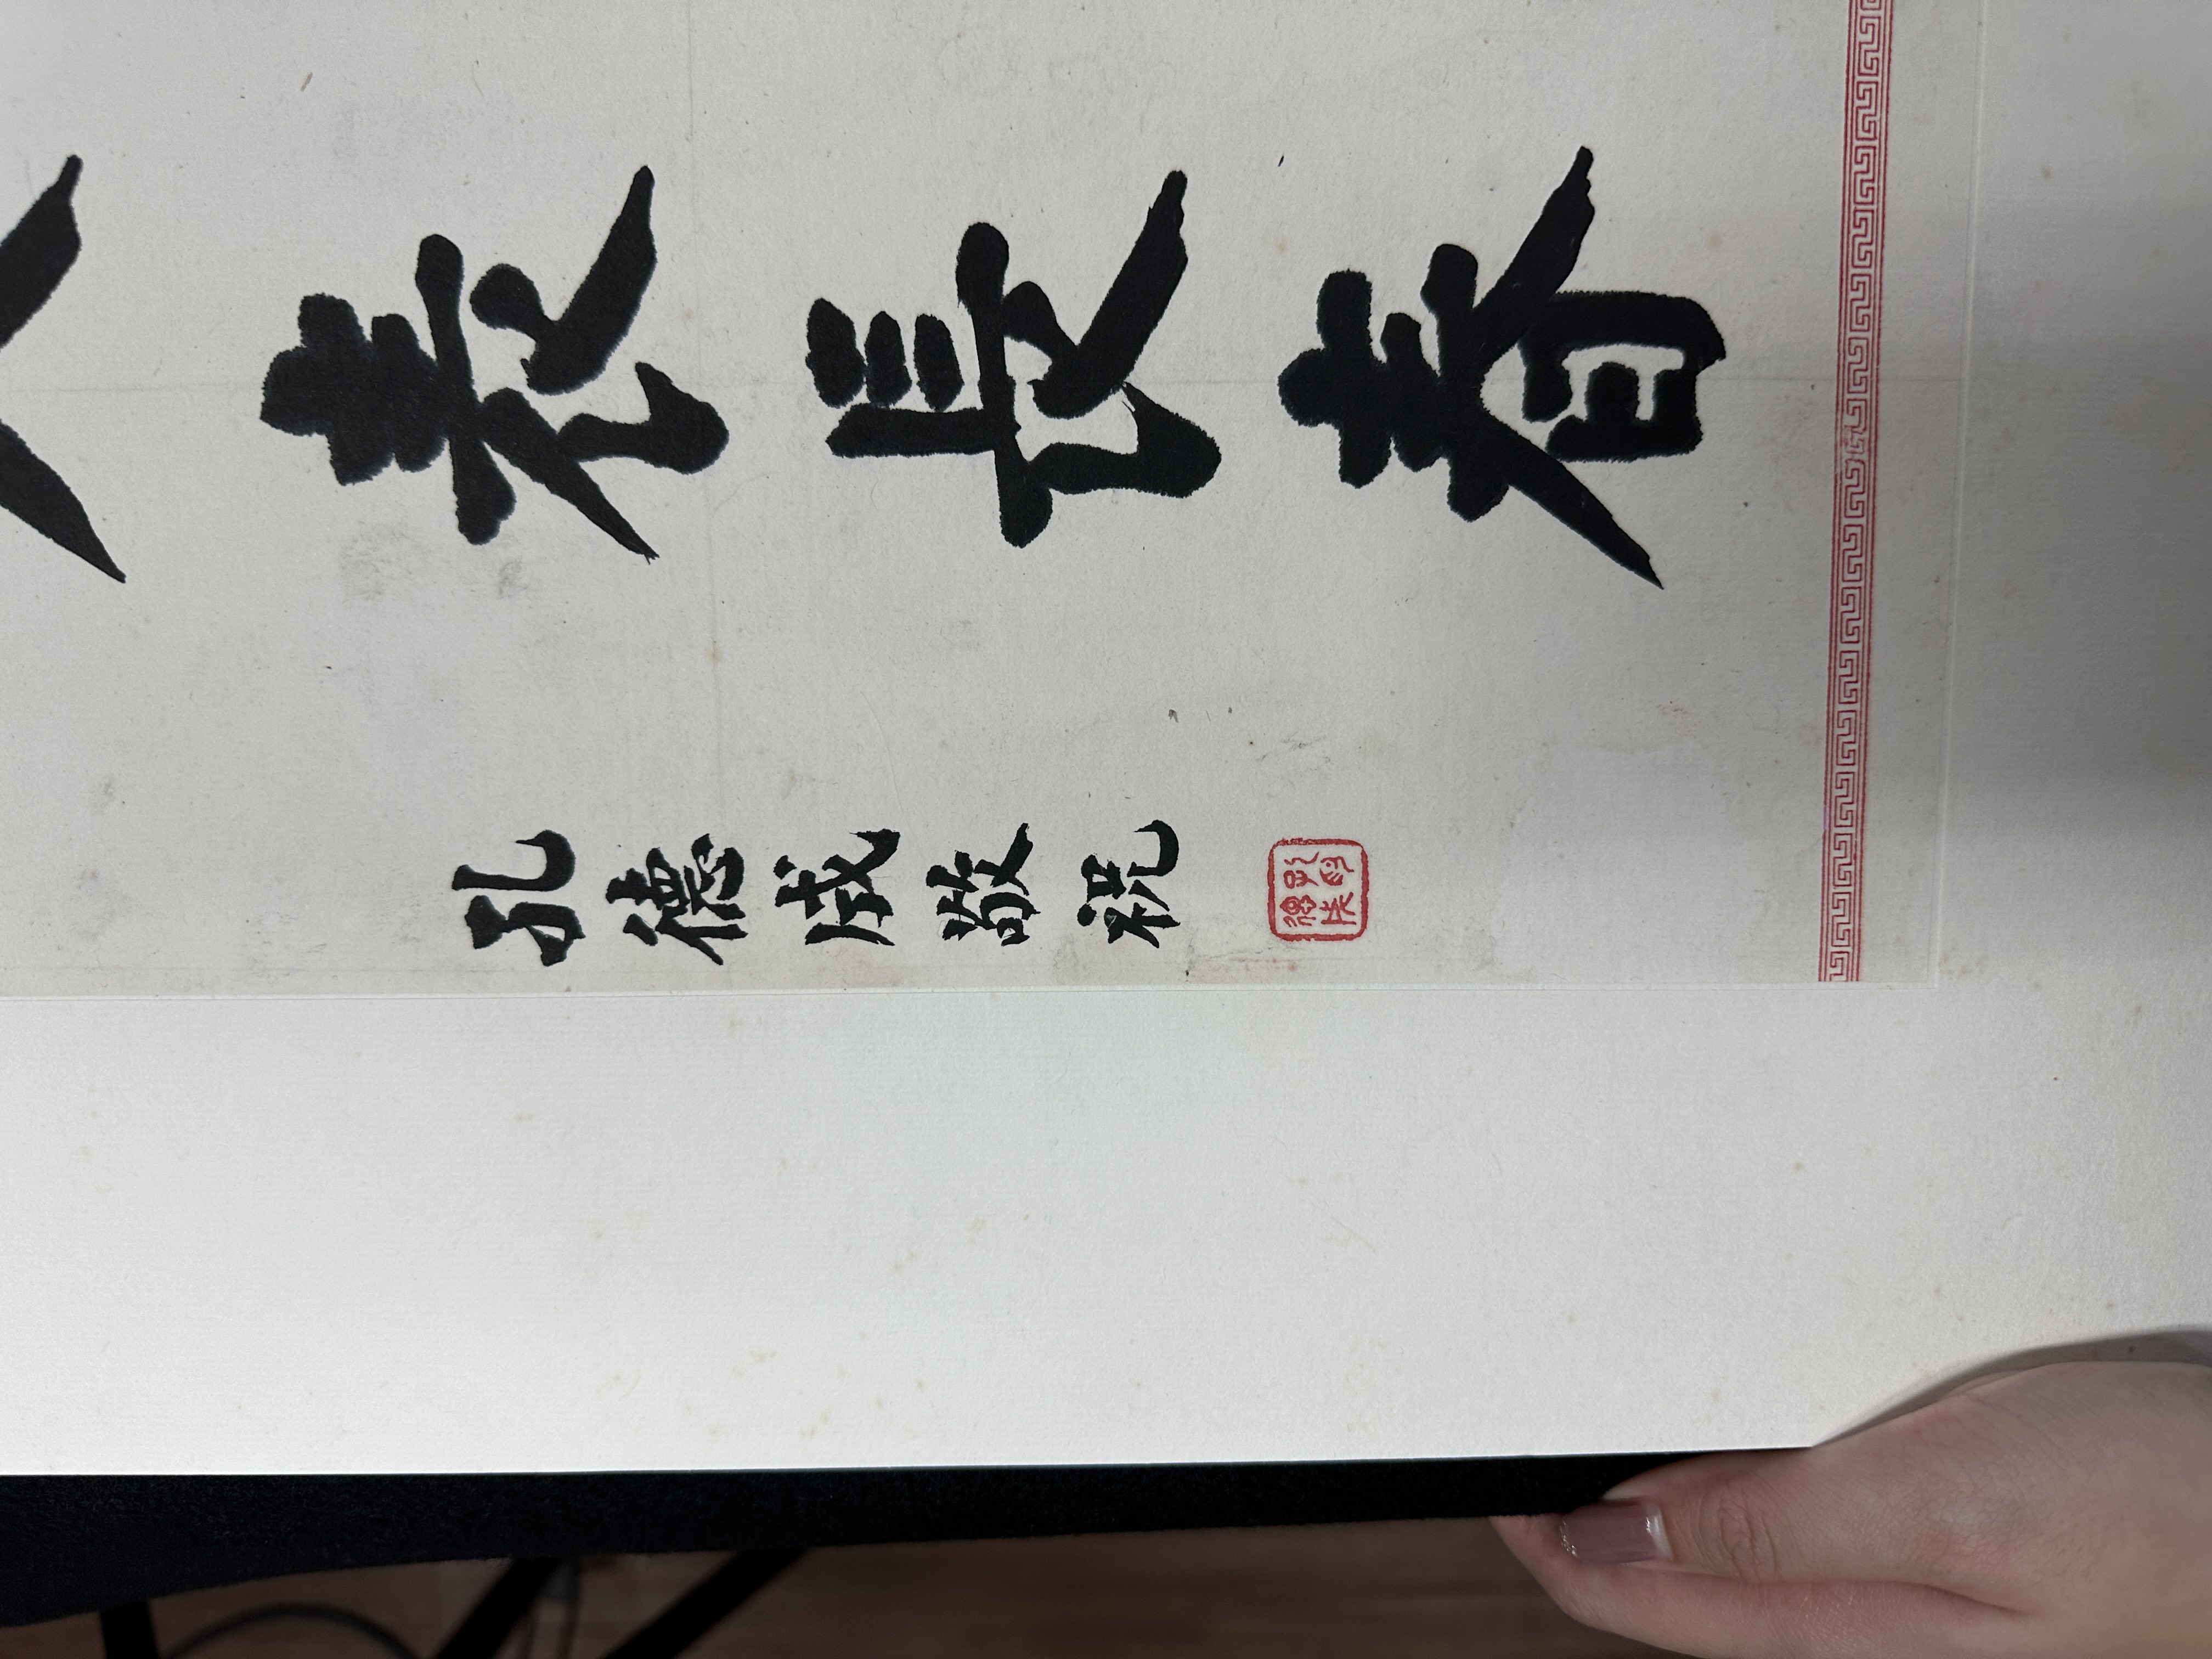 表長春
孔德成敬祝
孔印
德成